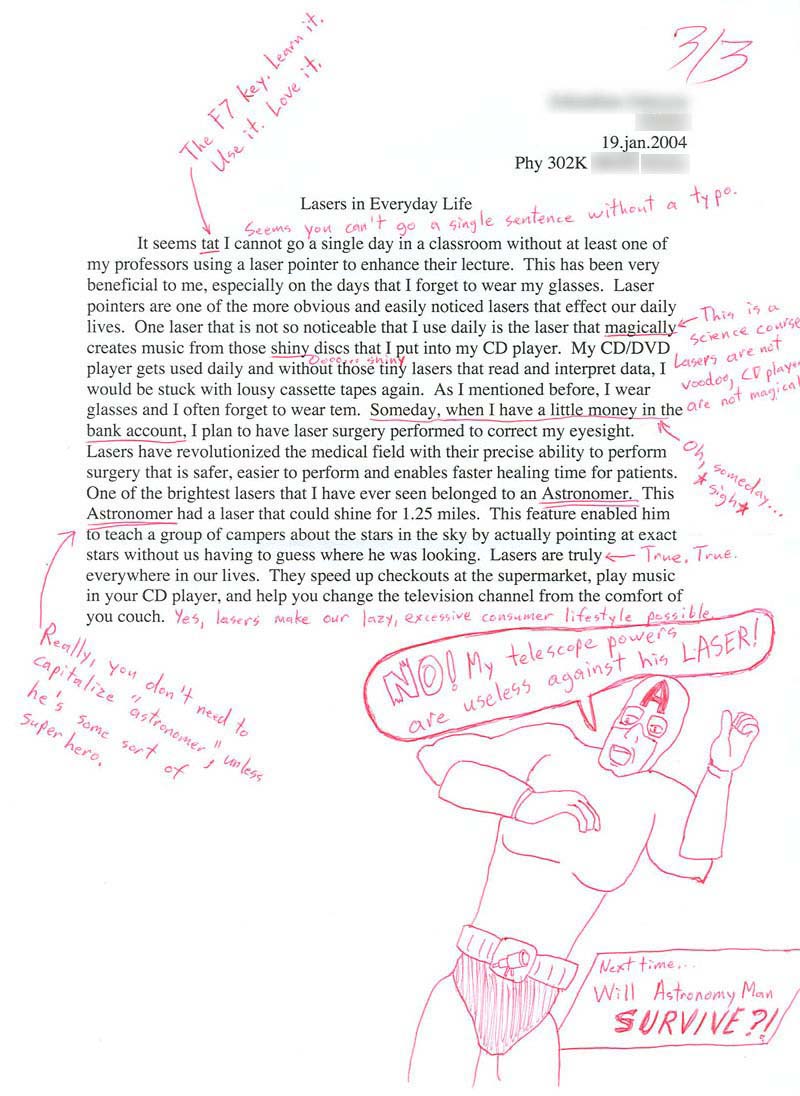 3/3
The F7 key. Learn it.
Use it. Love it.
19.jan.2004
Phy 302K
Lasers in Everyday Life
Seems you can't go a single sentence without a typo.
It seems tat I cannot go a single day in a classroom without at least one of
my professors using a laser pointer to enhance their lecture. This has been very
beneficial to me, especially on the days that I forget to wear my glasses. Laser
pointers are one of the more obvious and easily noticed lasers that effect our daily
lives. One laser that is not so noticeable that I use daily is the laser that magically
creates music from those shiny discs that I put into my CD player. My CD/DVD
Oooo... shiny
player gets used daily and without those tiny lasers that read and interpret data, I
would be stuck with lousy cassette tapes again. As I mentioned before, I wear
glasses and I often forget to wear tem. Someday, when I have a little money in the
bank account, I plan to have laser surgery performed to correct my eyesight.
Lasers have revolutionized the medical field with their precise ability to perform
surgery that is safer, easier to perform and enables faster healing time for patients.
One of the brightest lasers that I have ever seen belonged to an Astronomer. This
Astronomer had a laser that could shine for 1.25 miles. This feature enabled him
to teach a group of campers about the stars in the sky by actually pointing at exact
stars without us having to guess where he was looking. Lasers are truly
everywhere in our lives. They speed up checkouts at the supermarket, play music
in your CD player, and help you change the television channel from the comfort of
you couch. Yes, lasers make our lazy, excessive consumer lifestyle possible.
This is a
science course
Lasers are not
voodoo, CD player
are not magical
Oh, someday...
*sigh*
True. True.
Really, you don't need to
capitalize "astronomer", unless
he's some sort of
superhero.
NO! My telescope powers
are useless against his LASER!
A
Next time...
Will Astronomy Man
SURVIVE?!